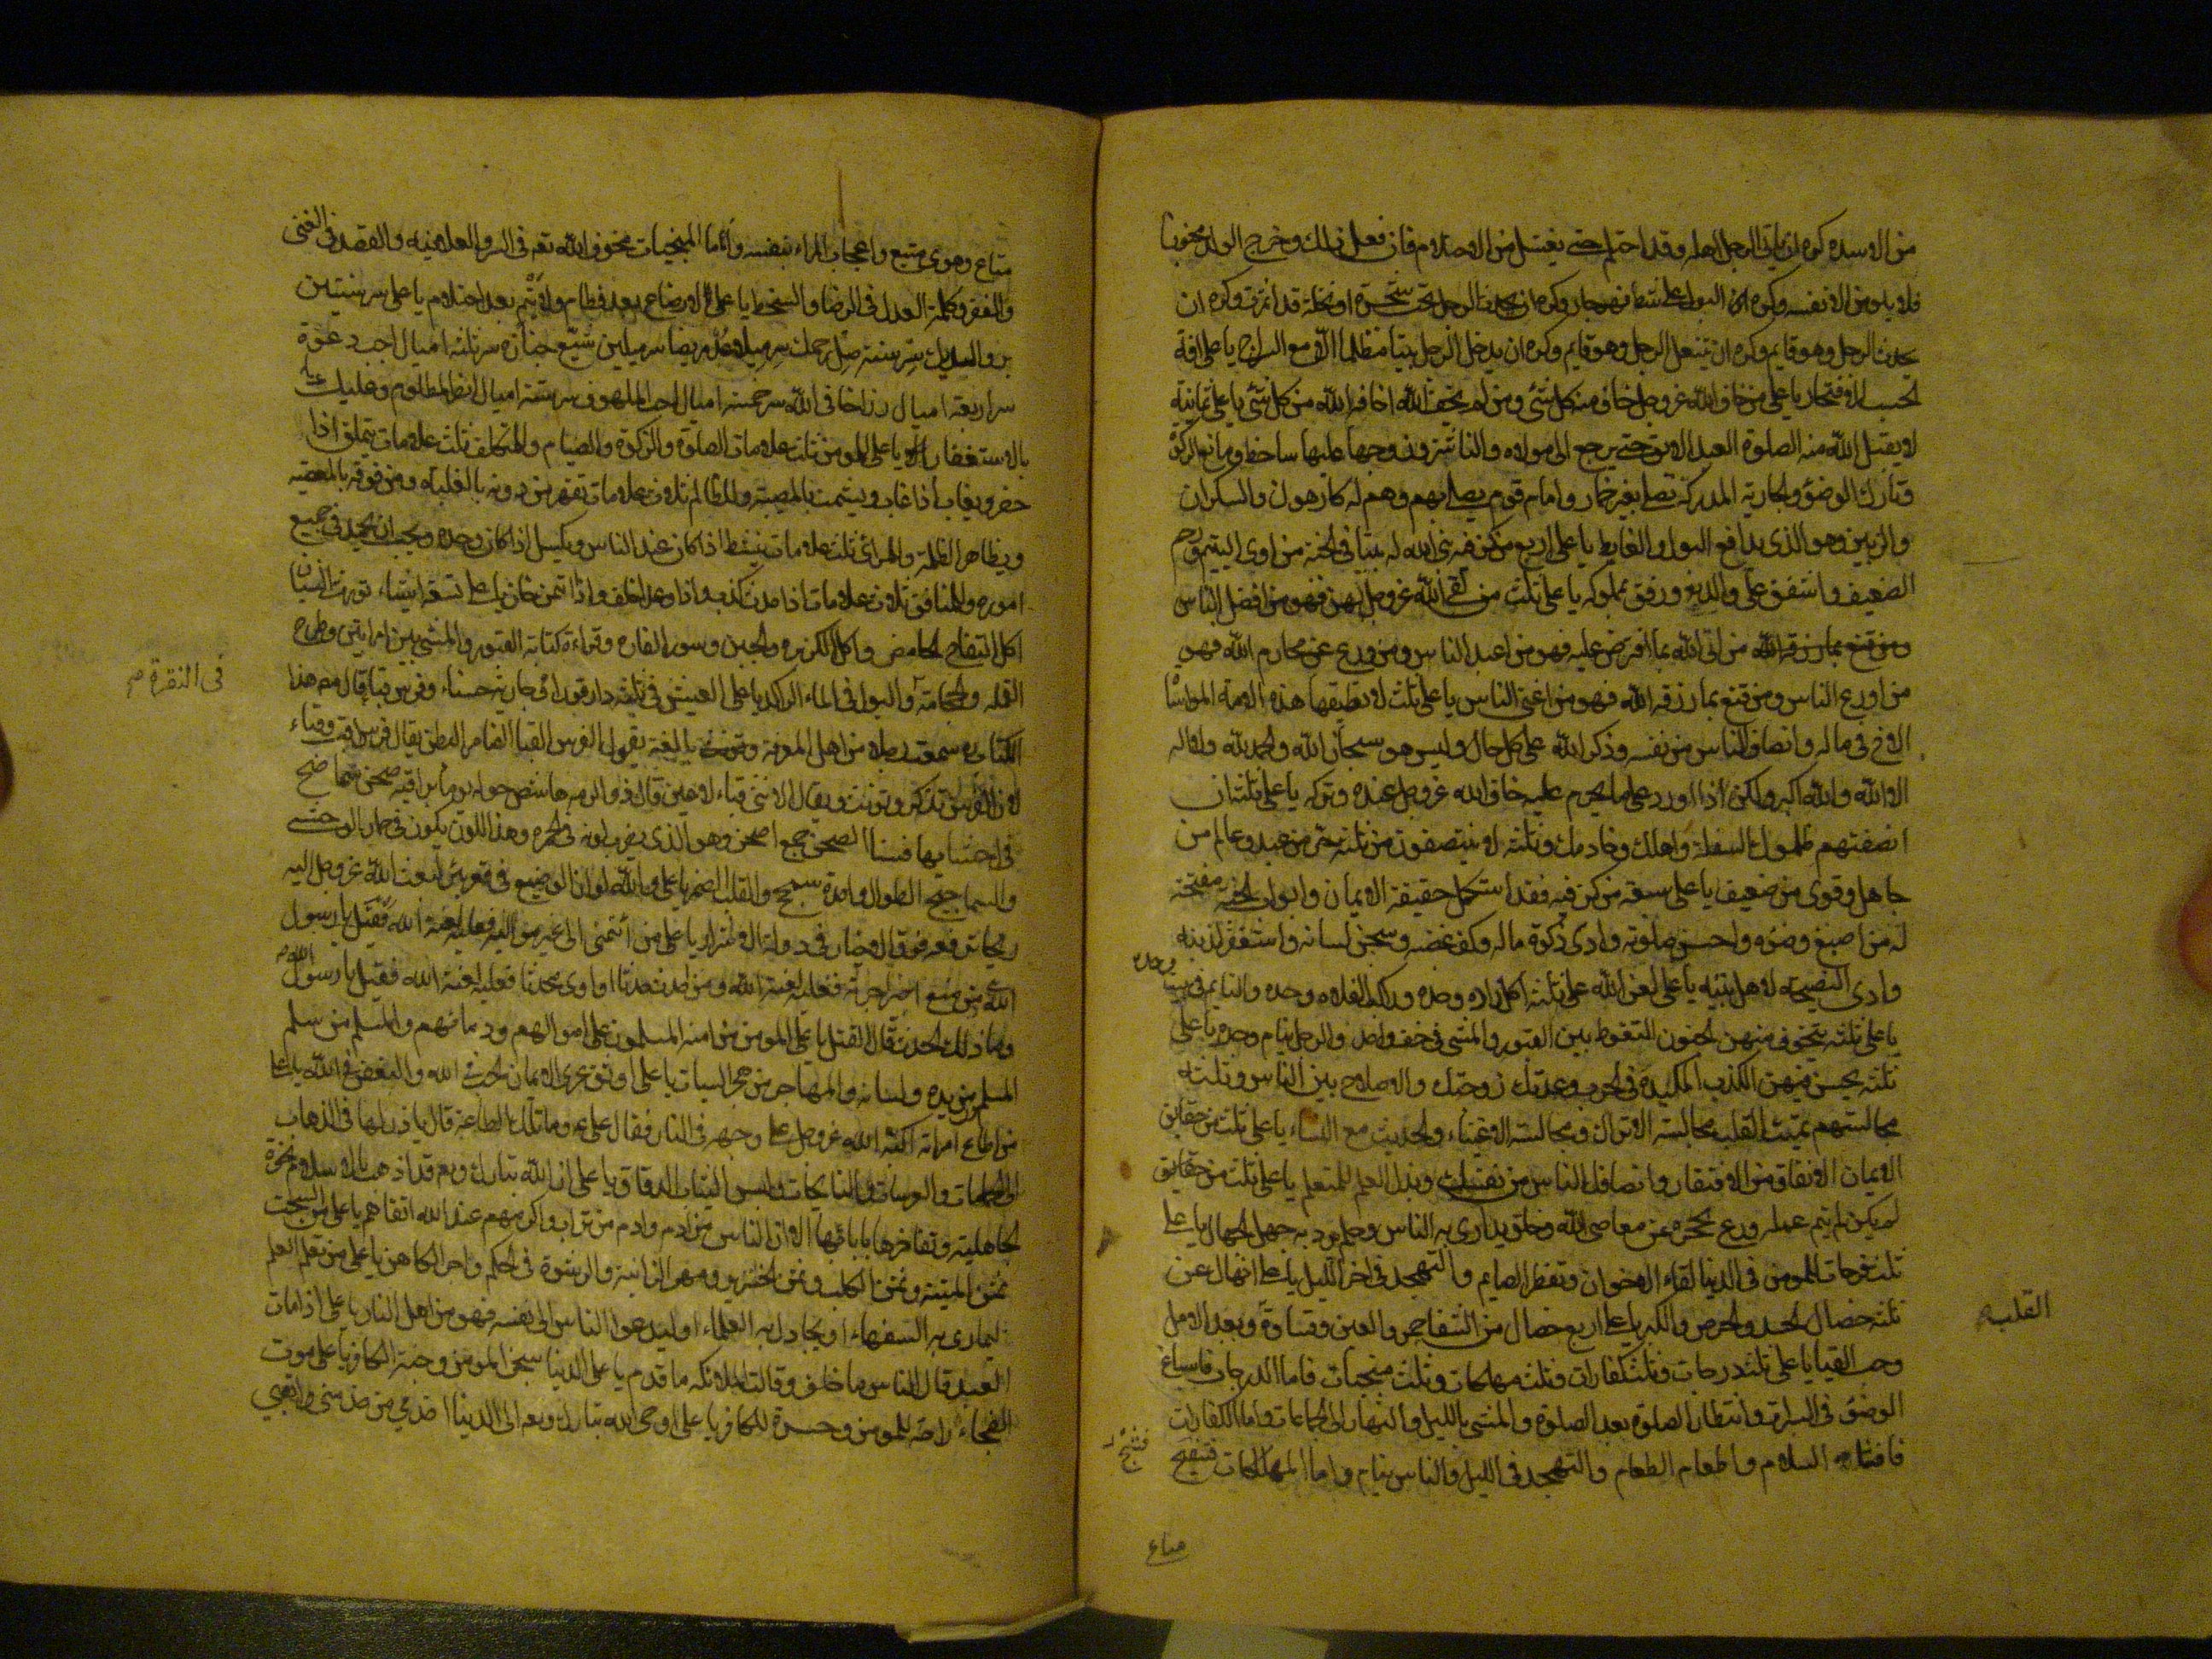 من الاسد وكره ان ياتى الرجل اهله وقد احتلم حتى يغتسل من الاحتلام فان فعل ذلك وخرج الولد مجنونا
فلا يلومن الا نفسه وكره البول على شط نهر جار وكره ان يحدث الرجل تحت شجرة او نخلة قد اثمرت وكره ان
يحدث الرجل وهو قايم وكره ان يتنعل الرجل وهو قايم وكره ان يدخل الرجل بيتا مظلما الا مع السراج يا على افة
الحسب الافتخار يا على من خاف الله عز وجل خاف منه كل شئ ومن لم يخف الله اخافه الله من كل شئ يا على ثمانية
لا يقبل الله منه الصلوة العبد الابق حتى يرجع الى مولاه والناشز وزوجها عليها ساخط ومانع الزكوة
وتارك الوضؤ والجارية المدركة تصلى بغير خمار وامام قوم يصلى بهم وهم له كارهون والسكران
والزبين وهو الذى يدافع البول والغايط يا على اربع من كن فيه بنى الله له بيتا فى الجنة من اوى اليتيم ورحم
الضعيف واشفق على والديه ورفق بمملوكه يا على ثلث من لقى الله عز وجل بهن فهو من افضل الناس
من اتى الله بما افترض عليه فهو من اعبد الناس ومن ورع عن محارم الله فهو
من اورع الناس ومن قنع بما رزقه الله فهو من اغنى الناس يا على ثلث لا تطيقها هذه الامة المواساة
الاخ فى ماله وانصاف الناس من نفسه وذكر الله على كل حال وليس هو سبحان الله والحمد لله ولا اله
الا الله والله اكبر ولكن اذا ورد على ما يحرم عليه خاف الله عز وجل عنده وتركه يا على ثلثة ان
انصفتهم ظلموك السفلة واهلك وخادمك وثلثة لا ينتصفون من ثلثة حر من عبد وعالم من
جاهل وقوى من ضعيف يا على سبعة من كن فيه فقد استكمل حقيقة الايمان وابواب الجنة مفتحة
له من اصبغ وضؤه واحسن صلوته وادى زكوة ماله وكف غضبه وسجن لسانه واستغفر لذنبه
وادى النصيحة لاهل بيته يا على لعن الله على ثلثة اكل زاده وحده وراكب الفلاة وحده والنايم فى بيت وحده
يا على ثلثة يتخوف منهن الجنون التغوط بين القبور والمشى فى خف واحد والرجل ينام وحده يا على
ثلثة يحسن فيهن الكذب المكيدة فى الحرب وعدتك زوجتك والاصلاح بين الناس وثلثة
مجالستهم تميت القلب مجالسة الانذال ومجالسة الاغنياء والحديث مع النساء يا على ثلث من حقايق
الايمان الانفاق من الاقتار وانصافك الناس من نفسك وبذل العلم للمتعلم يا على ثلث من
لم يكن لم يتم عمله ورع يحجزه عن معاصى الله وخلق يدارى به الناس وحلم يرد به جهل الجهال يا على
ثلث فرحات للمومن فى الدنيا لقاء الاخوان وتفطر الصايم والتهجد فى اخر الليل يا على انهاك عن
ثلثة خصال الحسد والحرص والكبر يا على اربع خصال من الشقا جمود العين وقساوة وبعد الامل
القلب
وحب البقا يا على ثلثة درجات وثلث كفارات وثلث مهلكات وثلث منجيات فاما الدرجات فاسباغ
الوضؤ فى السبرات وانتظار الصلوة بعد الصلوة والمشى بالليل والنهار الى الجماعات واما الكفارات
فافشاء السلام واطعام الطعام والتهجد فى الليل والناس نيام واما المهلكات فشح
مطاع
مطاع وهوى متبع واعجاب المراء بنفسه واما المنجيات فخوف الله تعم فى السر والعلانية والقصد فى الغنى
والفقر وكلمة العدل فى الرضا والسخط يا على لا رضاع بعد فطام ولا يتم بعد احتلام يا على سر سنتين
بر والديك سر سنة صل رحمك سر ميلا عد مريضا سر ميلين شيع جنازة سر ثلثة اميال اجب دعوة
سر اربعة اميال زر اخا فى الله سر خمسة اميال اجب الملهوف سر ستة اميال انصر المظلوم وعليك
بالاستغفار يا على للمومن ثلث علامات الصلوة والزكوة والصيام وللمتكلف ثلث علامات يتملق اذا
حضر ويغاب اذا غاب ويشمت بالمصيبة وللظالم ثلاث علامات يقهر من دونه بالغلبة ومن فوقه بالمعصيه
ويظاهر الظلمة وللمرائى ثلث علامات ينشط اذا كان عند الناس ويكسل اذا كان وحده ويحب ان يحمد فى جميع
اموره وللمنافق ثلاث علامات اذا حدث كذب واذا وعد اخلف واذا ائتمن خان يا على تسعة اشياء تورث النسيان
اكل التفاح الحامض واكل الكزبره والجبن وسور الفاره وقراءة كتابة القبور والمشى بين امراتين وطرح
القمله والحجامة والبول فى الماء الراكد يا على العيش فى ثلثة دار قوراء وجارية حسناء وفرس قباء قال مص هذا
فى النقرة
الكتاب ره سمعت رجلا من اهل المعرفة باللغة يقول الفرس القبا الضامر البطن يقال فرس اقب وقباء
لان الفرس تذكر وتونث ويقال للانثى قباء لا غير قال ذو الرمه
والسماحيج الطوال واحدة سمحج والقبب الضمر يا على والله لو ان الوضيع فى قعر بئر لبعث الله عز وجل اليه
ريحا ترفعه فوق الاخيار فى دولة الاشرار يا على من انتمى الى غير مواليه فعليه لعنة الله
ومن منع اجيرا اجرته فعليه لعنة الله ومن احدث حدثا او اوى محدثا فعليه لعنة الله فقيل يا رسول الله
وما ذلك الحدث قال القتل يا على المومن من امنه المسلمون على اموالهم ودمائهم والمسلم من سلم
المسلمون من يده ولسانه والمهاجر من هجر السيات يا على اوثق عرى الايمان الحب فى الله والبغض فى الله يا على
من اطاع امراته اكبه الله عز وجل على وجهه فى النار فقال على ع وما تلك الطاعة قال ياذن لها فى الذهاب
الى الحمامات والعرسات والنايحات ولبس الثياب الرقاق يا على ان الله تبارك وتعم قد اذهب بالاسلام نخوة
الجاهلية وتفاخرها بابائها الا ان الناس من ادم وادم من تراب واكرمهم عند الله اتقاهم يا على من السحت
ثمن الميتة وثمن الكلب وثمن الخنزير ومهر الزانية والرشوة فى الحكم واجر الكاهن يا على من تعلم العلم
ليمارى به السفهاء او يجادل به العلماء او ليدعوا الناس الى نفسه فهو من اهل النار يا على اذا مات
العبد قال الناس ما خلف وقالت الملائكه ما قدم يا على الدنيا سجن المومن وجنة الكافر يا على موت
الفجاء راحة للمومن وحسرة للكافر يا على اوحى الله تبارك وتعم الى الدنيا اخدمى من خدمنى واتعبى